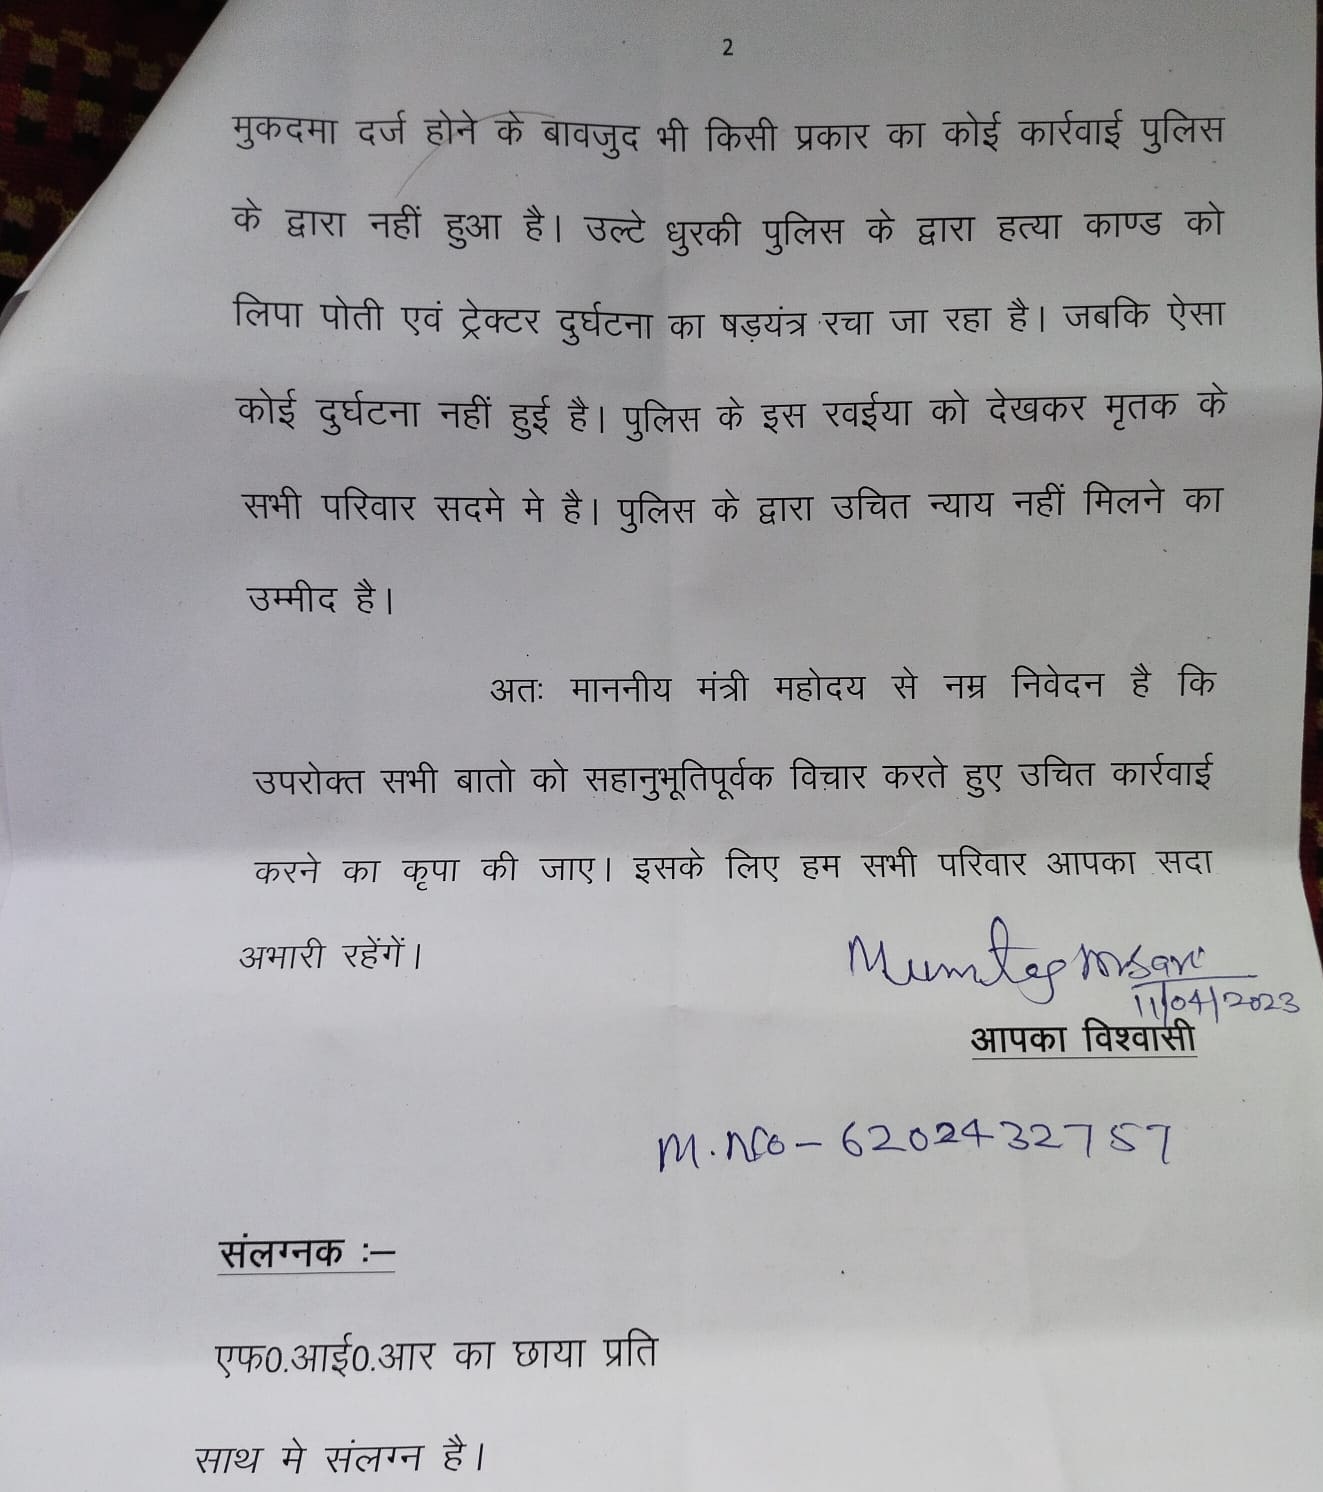 2
मुकदमा दर्ज होने के बावजुद भी किसी प्रकार का कोई कार्रवाई पुलिस
के द्वारा नहीं हुआ है। उल्टे धुरकी पुलिस के द्वारा हत्या काण्ड को
लिपा पोती एवं ट्रेक्टर दुर्घटना का षड़यंत्र रचा जा रहा है। जबकि ऐसा
कोई दुर्घटना नहीं हुई है। पुलिस के इस रवईया को देखकर मृतक के
सभी परिवार सदमे मे है। पुलिस के द्वारा उचित न्याय नहीं मिलने का
उम्मीद है।
अतः माननीय मंत्री महोदय से नम्र निवेदन है कि
उपरोक्त सभी बातो को सहानुभूतिपूर्वक विचार करते हुए उचित कार्रवाई
करने का कृपा की जाए। इसके लिए हम सभी परिवार आपका सदा
अभारी रहेंगें।
11/04/2023
आपका विश्वासी
M. No - 6202432757
संलग्नक :–
एफ0.आई0.आर का छाया प्रति
साथ मे संलग्न है।